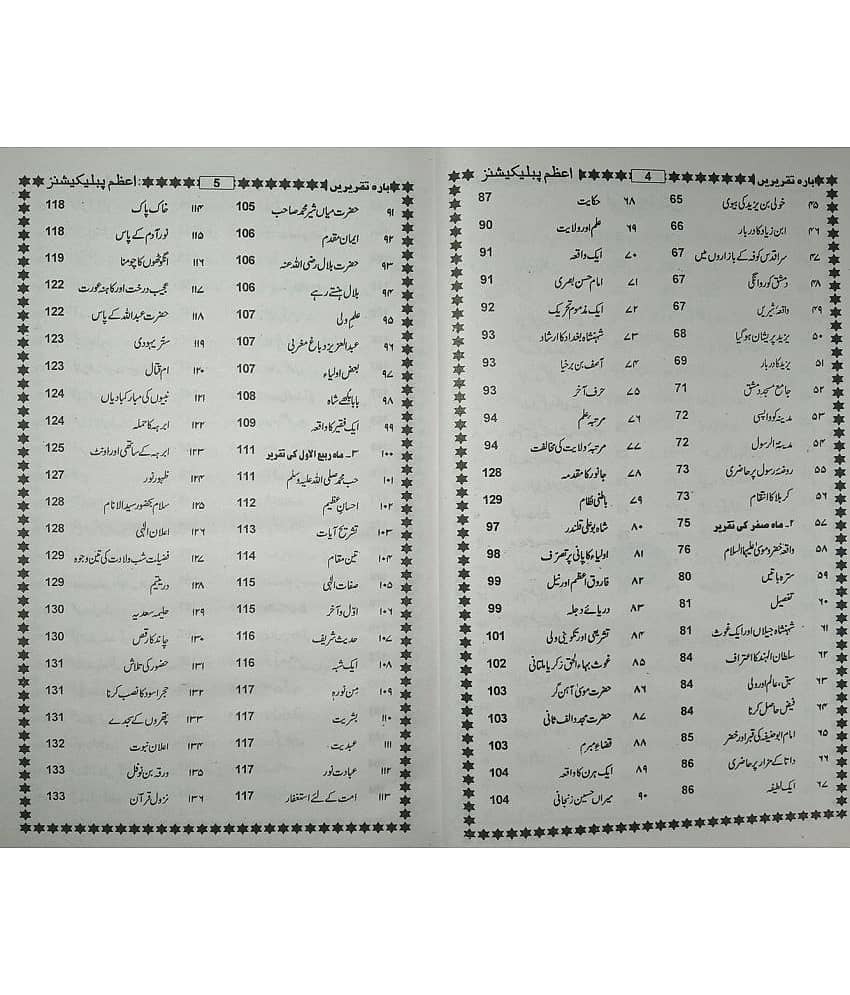 بارہ تقریریں 4 اعظم پبلیکیشنز
۴۵ خولی بن یزید کی بیوی 65
۴۶ ابن زیاد کا دربار 66
۴۷ سر اقدس کوفہ کے بازاروں میں 67
۴۸ دمشق کو روانگی 67
۴۹ واقعہ شیریں 67
۵۰ یزید پریشان ہو گیا 68
۵۱ یزید کا دربار 69
۵۲ جامع مسجد دمشق 71
۵۳ مدینہ کو واپسی 72
۵۴ مدینۃ الرسول 72
۵۵ روضۂ رسول پر حاضری 73
۵۶ کربلا کا انتقام 73
۵۷ ۲۔ ماہ صفر کی تقریر 75
۵۸ واقعہ خضر و موسیٰ علیہما السلام 76
۵۹ سترہ باتیں 80
۶۰ تفصیل 81
۶۱ شہنشاہ جیلاں اور ایک غوث 81
۶۲ سلطان الہند کا اعتراف 84
۶۳ سبق، عالم اور ولی 84
۶۴ فیض حاصل کرنا 84
۶۵ امام ابو حنیفہ کی قبر اور خضر 85
۶۶ داتا کے مزار پر حاضری 86
۶۷ ایک لطیفہ 86
۶۸ حکایت 87
۶۹ علم اور ولایت 90
۷۰ ایک واقعہ 91
۷۱ امام حسن بصری 91
۷۲ ایک مذموم تحریک 92
۷۳ شہنشاہ بغداد کا ارشاد 93
۷۴ آصف بن برخیا 93
۷۵ حرف آخر 93
۷۶ مرتبہ علم 94
۷۷ مرتبۂ ولایت کی مخالفت 94
۷۸ جانور کا مقدمہ 128
۷۹ باطنی نظام 129
۸۰ شاہ بوعلی قلندر 97
۸۱ اولیاء کا پانی پر تصرف 98
۸۲ فاروق اعظم اور نیل 99
۸۳ دریائے دجلہ 99
۸۴ تشریعی اور تکوینی ولی 101
۸۵ غوث بہاء الحق زکریا ملتانی 102
۸۶ حضرت موسیٰ آہن گر 103
۸۷ حضرت مجدد الف ثانی 103
۸۸ قضاء مبرم 103
۸۹ ایک ہرن کا واقعہ 104
۹۰ میراں حسین زنجانی 104
بارہ تقریریں 5 اعظم پبلیکیشنز
۹۱ حضرت میاں شیر محمد صاحب 105
۹۲ ایمان مقدم 106
۹۳ حضرت بلال رضی اللہ عنہ 106
۹۴ بلال ہنستے رہے 106
۹۵ علم ولی 107
۹۶ عبدالعزیز دباغ مغربی 107
۹۷ بعض اولیاء 107
۹۸ بابا بلھے شاہ 108
۹۹ ایک فقیر کا واقعہ 109
۱۰۰ ۳۔ ماہ ربیع الاول کی تقریر 111
۱۰۱ حب محمد صلی اللہ علیہ وسلم 111
۱۰۲ احسان عظیم 112
۱۰۳ تشریح آیات 113
۱۰۴ تین مقام 114
۱۰۵ صفات الٰہی 115
۱۰۶ اوّل و آخر 115
۱۰۷ حدیث شریف 116
۱۰۸ ایک شبہ 116
۱۰۹ من نورہ 117
۱۱۰ بشریت 117
۱۱۱ عبدیت 117
۱۱۲ عبادت نور 117
۱۱۳ امت کے لئے استغفار 117
۱۱۴ خاک پاک 118
۱۱۵ نور آدم کے پاس 118
۱۱۶ انگوٹھوں کا چومنا 119
۱۱۷ عجیب درخت اور کاہنہ عورت 122
۱۱۸ حضرت عبداللہ کے پاس 122
۱۱۹ ستر یہودی 123
۱۲۰ ام قتال 123
۱۲۱ نبیوں کی مبارکبادیاں 124
۱۲۲ ابرہہ کا حملہ 124
۱۲۳ ابرہہ کے ساتھی اور اونٹ 125
۱۲۴ ظہور نور 127
۱۲۵ سلام بحضور سید الانام 128
۱۲۶ اعلان الٰہی 128
۱۲۷ فضیلت شب ولادت کی تین وجوہ 129
۱۲۸ دریتیم 129
۱۲۹ حلیمہ سعدیہ 130
۱۳۰ چاند کا رقص 130
۱۳۱ حضور کی تلاش 131
۱۳۲ حجر اسود کا نصب کرنا 131
۱۳۳ پتھروں کے سجدے 131
۱۳۴ اعلان نبوت 132
۱۳۵ ورقہ بن نوفل 133
۱۳۶ نزول قرآن 133